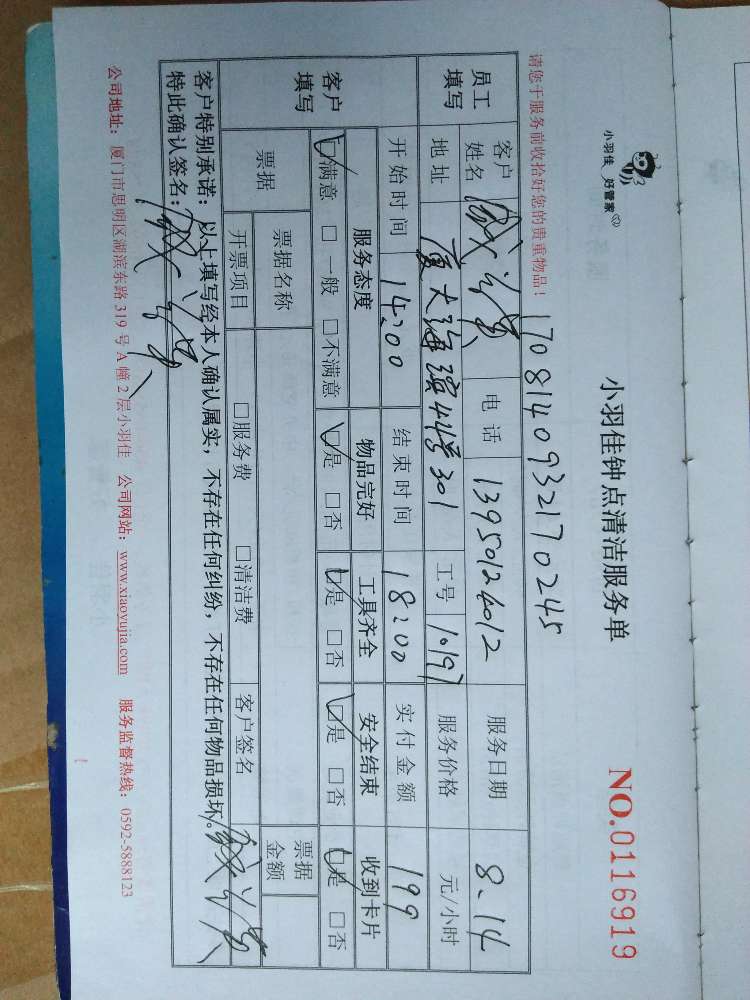 小羽佳 好管家
小羽佳钟点清洁服务单
NO.0116919
请您于服务前收拾好您的贵重物品！ 170814093217 0245
员工填写 客户姓名 电话 13950124012 服务日期 8.14
地址 厦大海滨44号301 工号 10197 服务价格 元/小时
客户填写 开始时间 14:00 结束时间 18:00 实付金额 199
服务态度 物品完好 工具齐全 安全结束 收到卡片
☑满意 □一般 □不满意 ☑是 □否 ☑是 □否 ☑是 □否 ☑是 □否
票据 票据名称 票据金额
开票项目 □服务费 □清洁费 客户签名
客户特别承诺：以上填写经本人确认属实，不存在任何纠纷，不存在任何物品损坏。
特此确认签名：
公司地址：厦门市思明区湖滨东路 319 号 A 幢 2 层小羽佳 公司网站：www.xiaoyujia.com 服务监督热线：0592-5888123